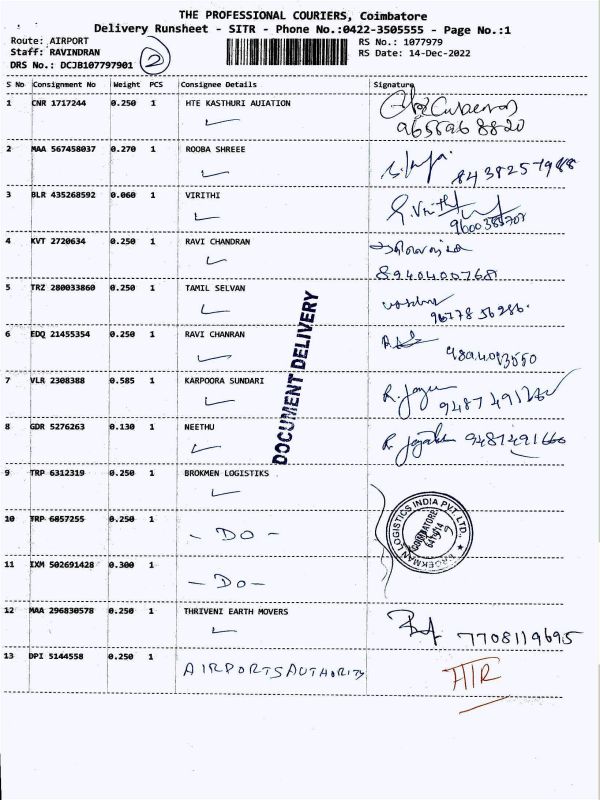 THE PROFESSIONAL COURIERS, Coimbatore
Delivery Runsheet - SITR - Phone No.:0422-3505555 - Page No.:1
Route: AIRPORT
Staff: RAVINDRAN
DRS No.: DCJB107797901
2
RS No.: 1077979
RS Date: 14-Dec-2022
S No Consignment No Weight PCS Consignee Details Signature
1 CNR 1717244 0.250 1 HTE KASTHURI AUIATION
9655968820
2 MAA 567458037 0.270 1 ROOBA SHREEE
8438257988
3 BLR 435268592 0.060 1 VIRITHI
4 KVT 2720634 0.250 1 RAVI CHANDRAN
8940400768
5 TRZ 280033860 0.250 1 TAMIL SELVAN
9677856286.
6 EDQ 21455354 0.250 1 RAVI CHANRAN
7 VLR 2308388 0.585 1 KARPOORA SUNDARI
8 GDR 5276263 0.130 1 NEETHU
9487491660
DOCUMENT DELIVERY
9 TRP 6312319 0.250 1 BROKMEN LOGISTIKS
10 TRP 6857255 0.250 1 - DO -
11 IXM 502691428 0.300 1 - DO -
BROEKMAN LOGISTICS INDIA PVT. LTD.,
COIMBATORE
641 014
12 MAA 296830578 0.250 1 THRIVENI EARTH MOVERS
7708119695
13 DPI 5144558 0.250 1 AIRPORTSAUTHORITY